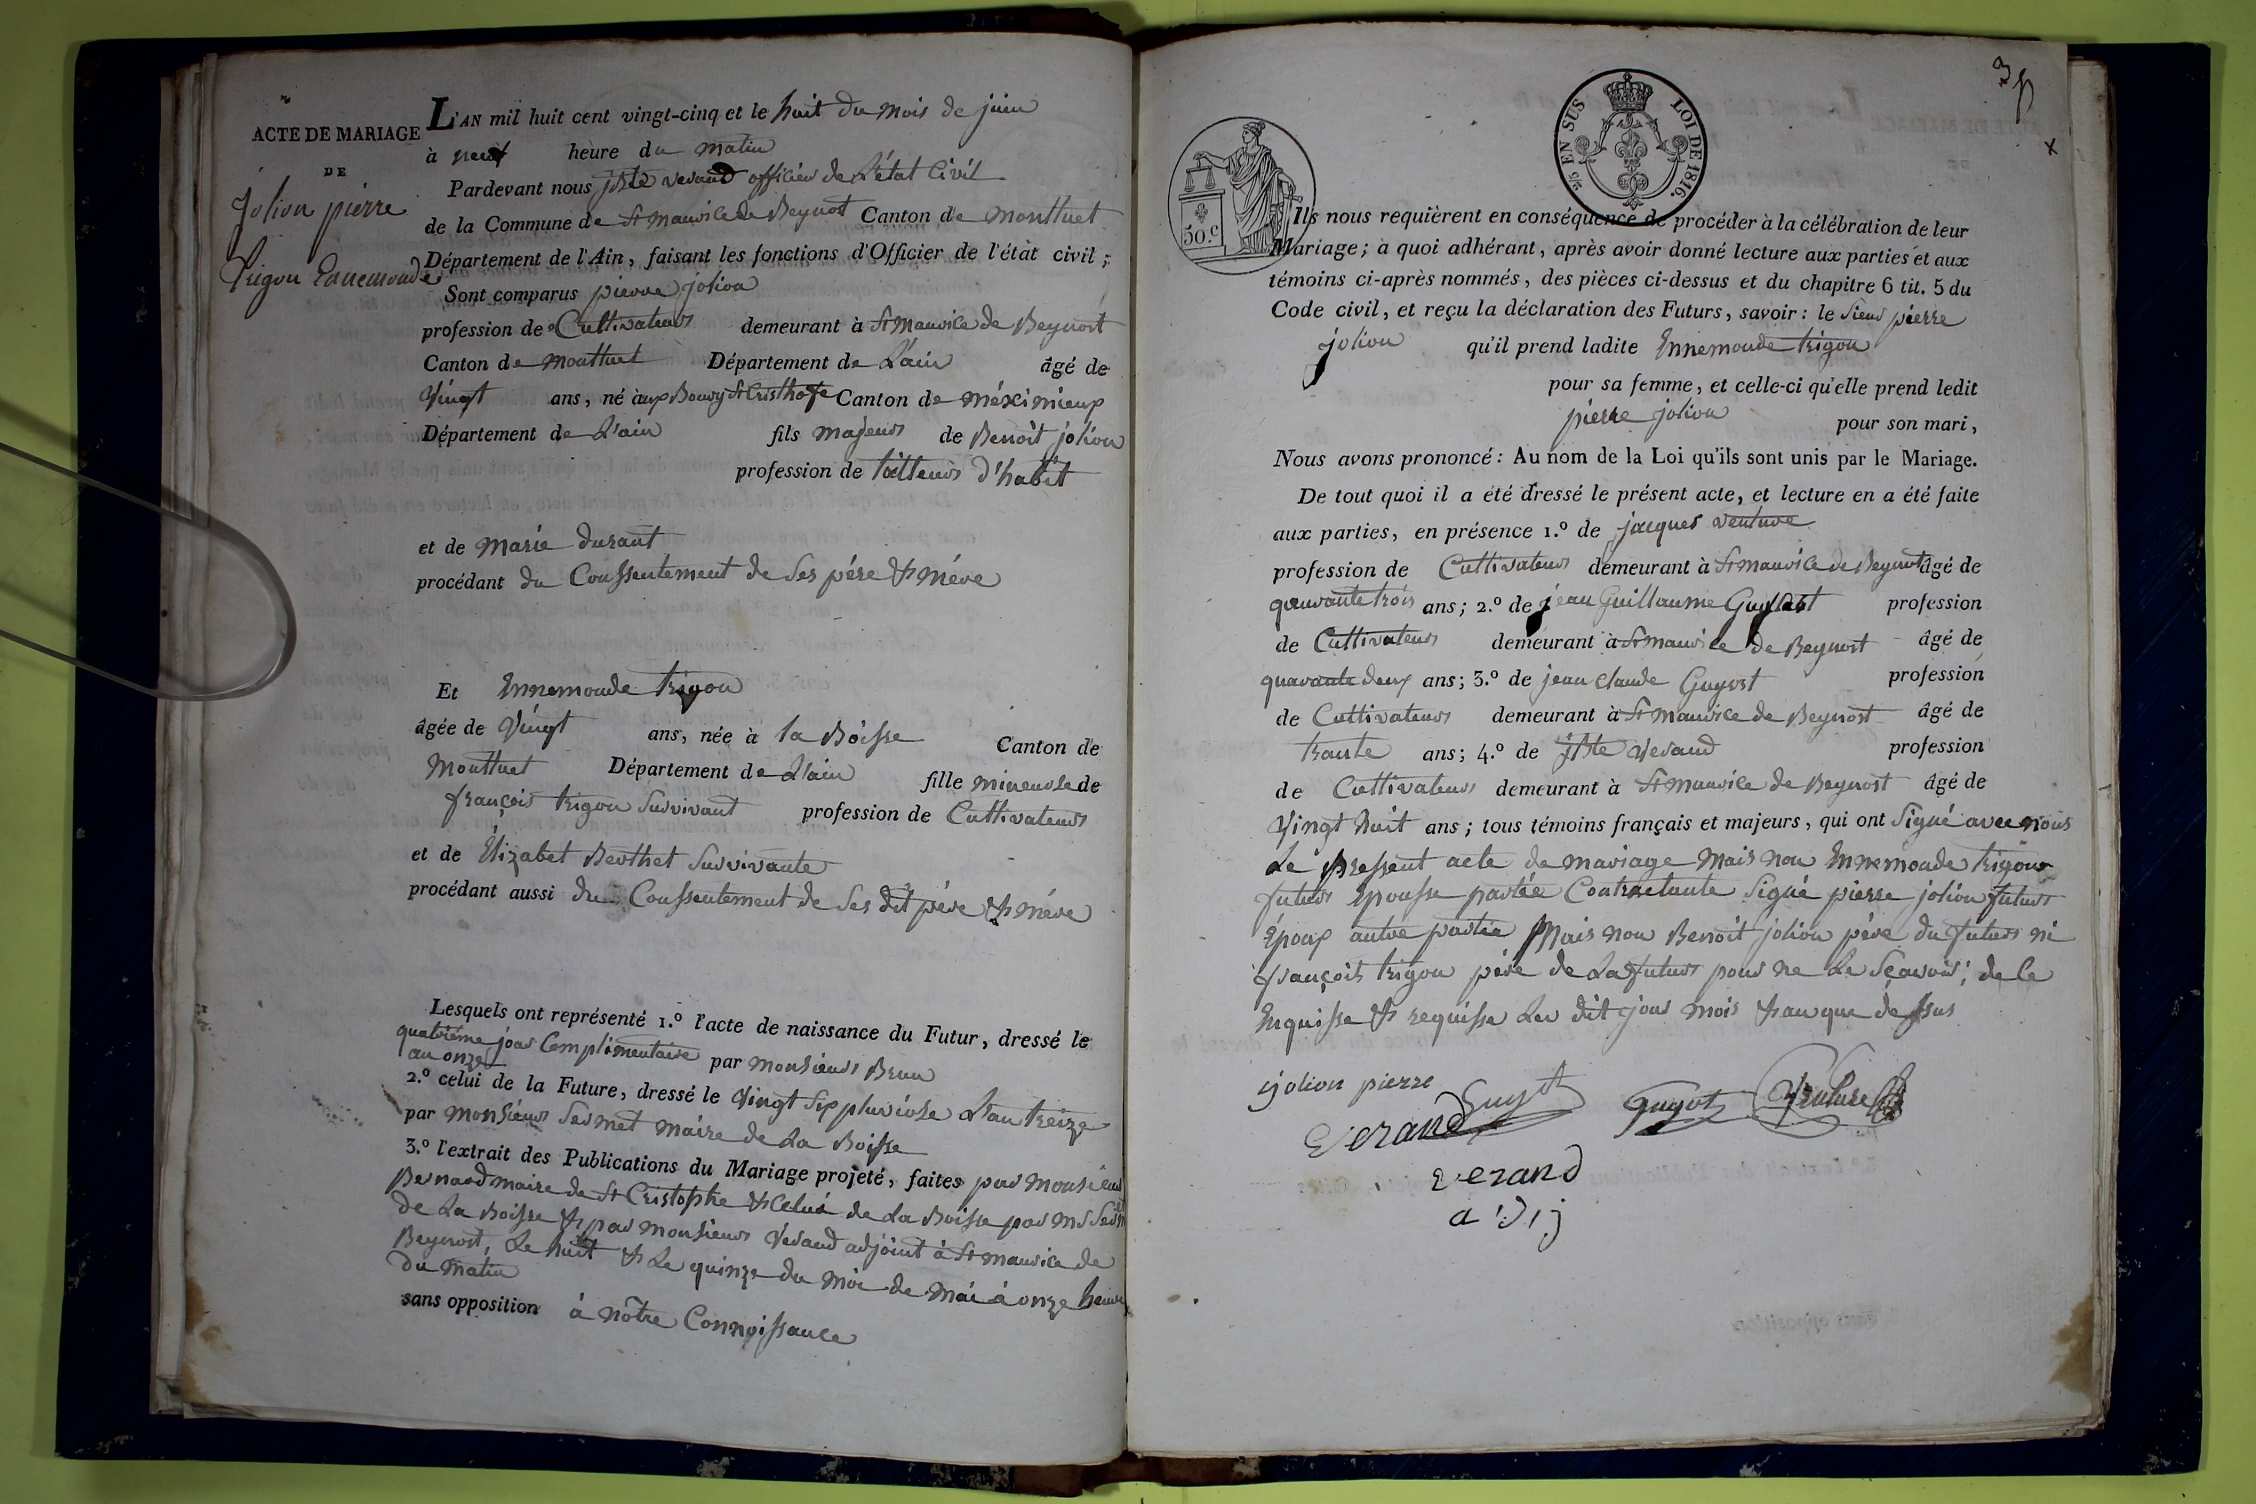 ACTE DE MARIAGE
DE
jolion pierre
trigon Ennemonde
L'AN mil huit cent vingt-cinq et le huit du mois de juin
à neuf heure du matin
Pardevant nous jBte verand officier de L'état Civil
de la Commune de St maurice de Beynost Canton de montluel
Département de l'Ain, faisant les fonctions d'Officier de l'état civil;
Sont comparus pierre jolion
profession de Cultivateur demeurant à St Maurice de Beynost
Canton de montluel Département de L'ain âgé de
Vingt ans, né à Bourg St Cristhofe Canton de méximieux
Département de L'ain fils majeur de Benoit jolion
profession de tailleur d'habit
et de Marie durant
procédant du Conssentement de Ses pére & mére
Et Ennemonde trigon
âgée de Vingt ans, née à la Boisse Canton de
Montluel Département de L'ain fille mineure de
françois trigon Survivant profession de Cultivateur
et de Élizabet Berthet Survivante
procédant aussi du Conssentement de Ses dit pére & mére
Lesquels ont représenté 1.º l'acte de naissance du Futur, dressé le
quatriéme jour Complimentaire
an onze par monsieur Brun
2.º celui de la Future, dressé le Vingt six pluviose L'an treize
par monsieur Sermet maire de La Boisse
3.º l'extrait des Publications du Mariage projeté, faites par monsieur
Bernard maire de St Cristophe & Celui de La Boisse par mr
de La Boisse & par monsieur verand adjoint à St maurice de
Beynost, Le huit & Le quinze du moi de mai à onze heure
du matin
sans opposition à nôtre Connoissance
3
x
2/5 EN SUS LOI DE 1816.
50.c
Ils nous requièrent en conséquence de procéder à la célébration de leur
Mariage; à quoi adhérant, après avoir donné lecture aux parties et aux
témoins ci-après nommés, des pièces ci-dessus et du chapitre 6 tit. 5 du
Code civil, et reçu la déclaration des Futurs, savoir: le Sieur pierre
jolion qu'il prend ladite Ennemonde trigon
pour sa femme, et celle-ci qu'elle prend ledit
pierre jolion pour son mari,
Nous avons prononcé: Au nom de la Loi qu'ils sont unis par le Mariage.
De tout quoi il a été dressé le présent acte, et lecture en a été faite
aux parties, en présence 1.º de jacques venture
profession de Cultivateur demeurant à St maurice de Beynost âgé de
quarante trois ans; 2.º de jean Guillaume Guyot profession
de Cultivateur demeurant à St maurice de Beynost âgé de
quarante deux ans; 3.º de jean claude Guyot profession
de Cultivateur demeurant à St maurice de Beynost âgé de
trante ans; 4.º de jBte verand profession
de Cultivateur demeurant à St maurice de Beynost âgé de
Vingt huit ans; tous témoins français et majeurs, qui ont Signé avec nous
Le pressent acte de mariage mais non Ennemonde trigon
futur Epousse partée Contractante Signé pierre jolion futur
Époux autre partie Mais non Benoit jolion pére du futur ni
françois trigon pére de La futur pour ne Le Sçavoir; de Ce
Enquisse & requisse Les dit jour mois & an que dessus
jolion pierre
Guyot Guyot Venture
verand
verand
adj